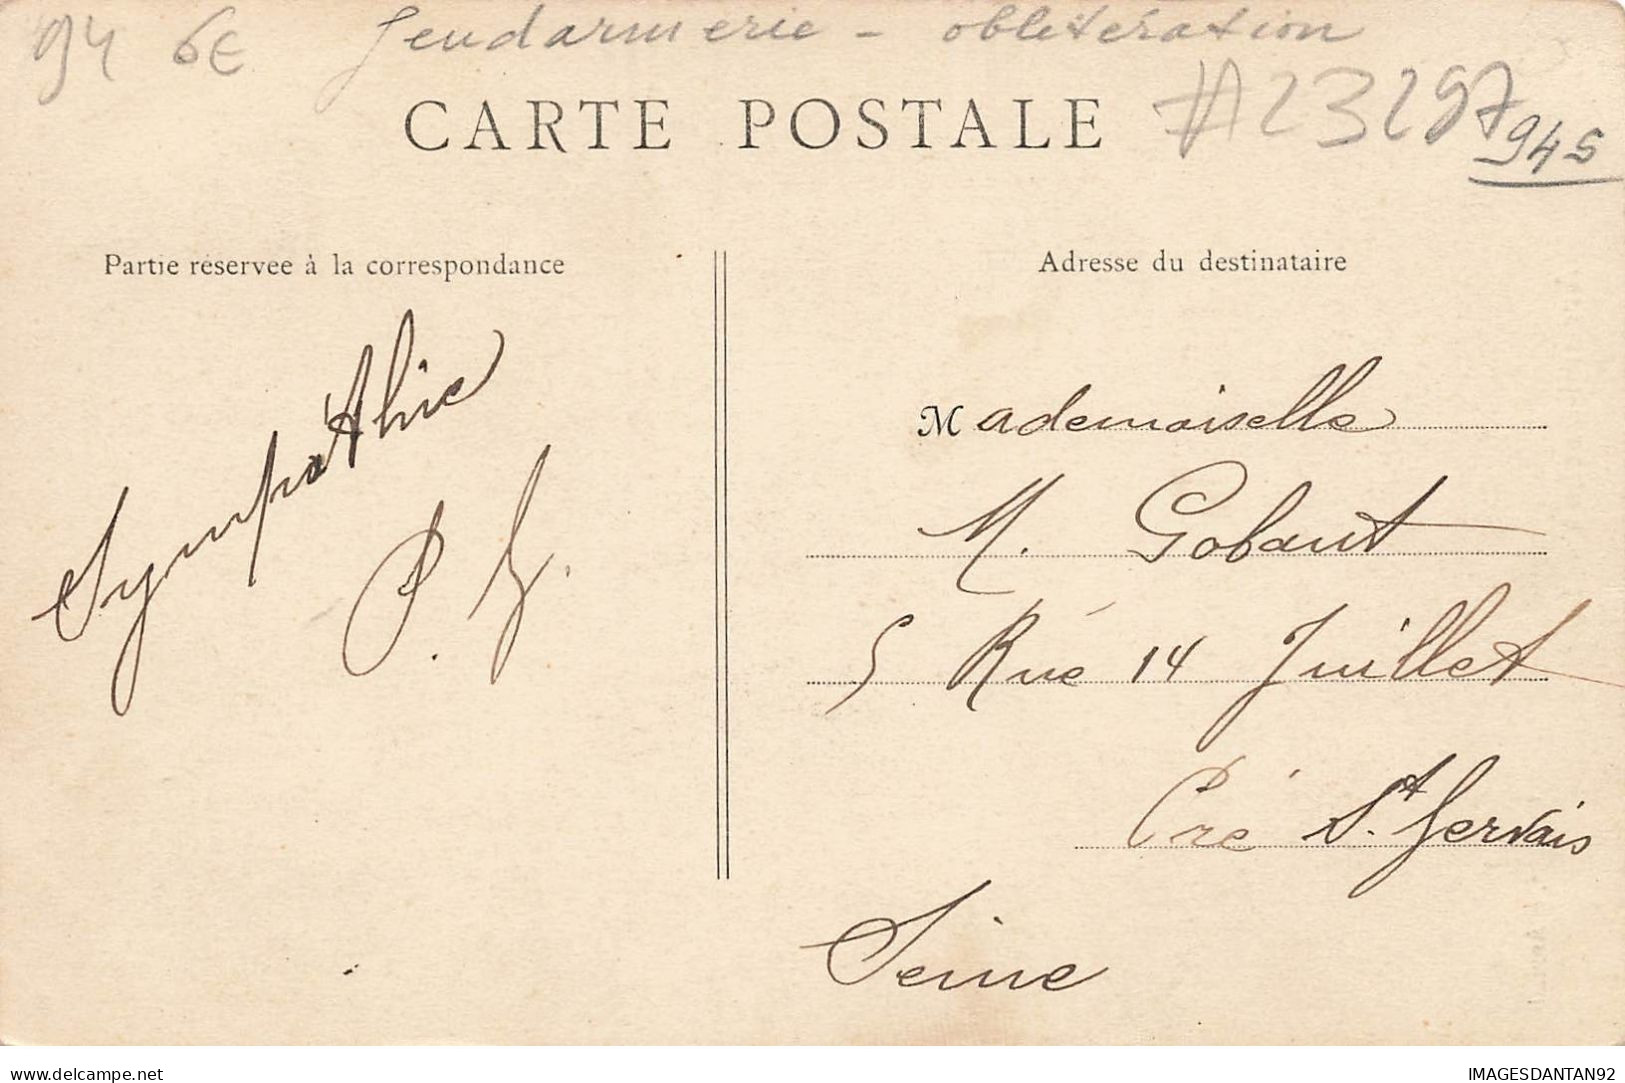 94 6€ Gendarmerie - oblitération
CARTE POSTALE
#23297
945
Partie réservee à la correspondance
Adresse du destinataire
Sympathie
P. G.
Mademoiselle
M. Gobaut
5 Rué 14 Juillet
Pré St. Gervais
Seine
delcampe.net
IMAGESDANTAN92